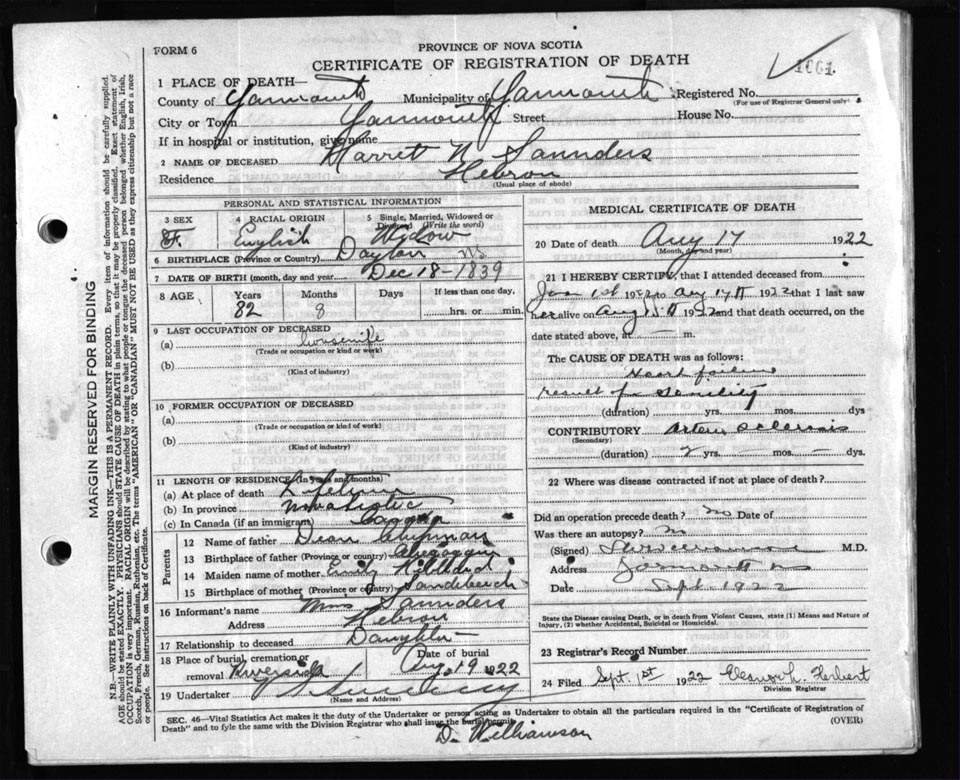 FORM 6
PROVINCE OF NOVA SCOTIA
CERTIFICATE OF REGISTRATION OF DEATH
1001.
1 PLACE OF DEATH—
County of Yarmouth Municipality of Yarmouth Registered No.
(For use of Registrar General only)
City or Town Yarmouth Street House No.
If in hospital or institution, give name
2 NAME OF DECEASED Harriet N. Saunders
Residence Hebron
(Usual place of abode)
PERSONAL AND STATISTICAL INFORMATION
3 SEX
F.
4 RACIAL ORIGIN
English
5 Single, Married, Widowed or Divorced (Write the word)
Widow
6 BIRTHPLACE (Province or Country) Dayton N.S
7 DATE OF BIRTH (month, day and year) Dec 18 - 1839
8 AGE Years Months Days If less than one day,
82 8 hrs. or min.
9 LAST OCCUPATION OF DECEASED
(a) housewife
(Trade or occupation or kind or work)
(b)
(Kind of industry)
10 FORMER OCCUPATION OF DECEASED
(a)
(Trade or occupation or kind of work)
(b)
(Kind of industry)
11 LENGTH OF RESIDENCE (in years and months)
(a) At place of death
(b) In province Nova Scotia
(c) In Canada (if an immigrant)
Parents
12 Name of father Dean
13 Birthplace of father (Province or country)
14 Maiden name of mother Emily
15 Birthplace of mother (Province or country)
16 Informant's name Saunders
Address Hebron
17 Relationship to deceased Daughter
18 Place of burial, cremation or removal Riverside Aug 19 1922
19 Undertaker
(Name and Address)
MEDICAL CERTIFICATE OF DEATH
20 Date of death Aug 17 1922
(Month, day and year)
21 I HEREBY CERTIFY, that I attended deceased from
Jan 1st 1922 to Aug 17th 1922 that I last saw
her alive on Aug 15th 1922 and that death occurred, on the
date stated above, at — m.
The CAUSE OF DEATH was as follows:
Heart failure
result of Senility
(duration) yrs. mos. dys
CONTRIBUTORY Arterio sclerosis
(Secondary)
(duration) 2 yrs. — mos. — dys.
22 Where was disease contracted if not at place of death?
Did an operation precede death? no Date of
Was there an autopsy? no
(Signed) M.D.
Address Yarmouth NS
Date Sept. 1922
State the Disease causing Death, or in death from Violent Causes, state (1) Means and Nature of
Injury, (2) whether Accidental, Suicidal or Homicidal.
23 Registrar's Record Number
24 Filed Sept. 1st 1922 Eleanor L. Herbert
Division Registrar
SEC. 46—Vital Statistics Act makes it the duty of the Undertaker or person acting as Undertaker to obtain all the particulars required in the "Certificate of Registration of
Death" and to fyle the same with the Division Registrar who shall issue the burial permit.
(OVER)
D. Williamson
MARGIN RESERVED FOR BINDING
N.B.—WRITE PLAINLY WITH UNFADING INK—THIS IS A PERMANENT RECORD. Every item of information should be carefully supplied.
AGE should be stated EXACTLY. PHYSICIANS should STATE CAUSE OF DEATH in plain terms, so that it may be properly classified. Exact statement of
OCCUPATION is very important. RACIAL ORIGIN will be described by stating to what people or tongue the deceased person belonged whether English, Irish,
Scotch, French, German, Russian, Ruthenian, etc. The terms "AMERICAN" OR "CANADIAN" MUST NOT BE USED as they express citizenship but not a race
or people. See instructions on back of Certificate.